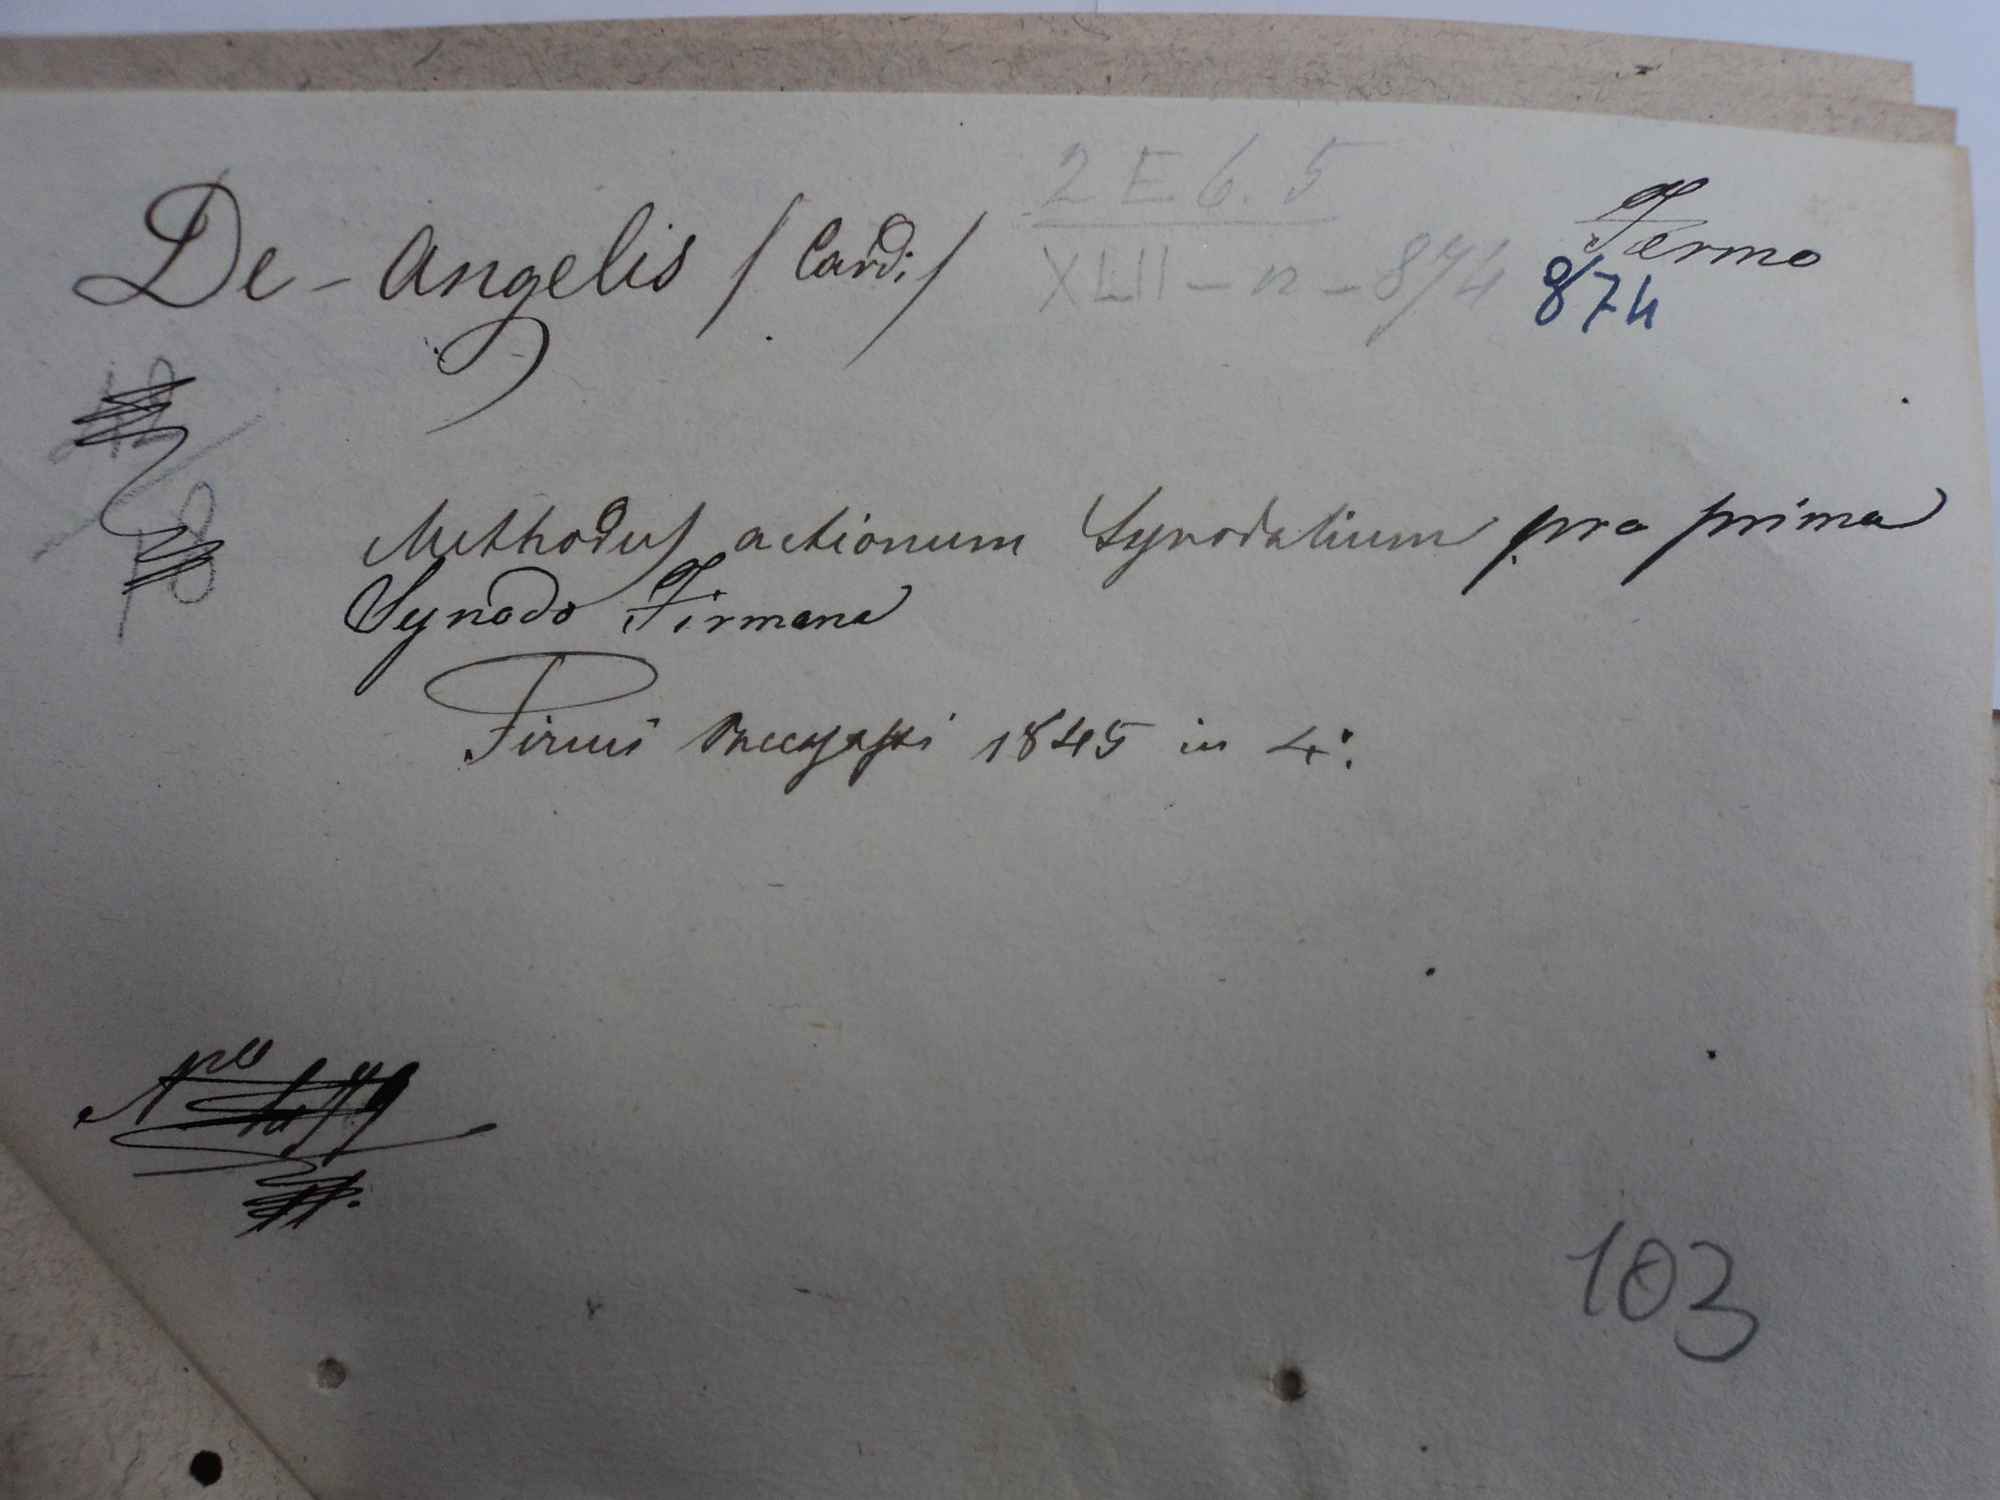 2 E 6. 5
De-Angelis / Card: / Fermo
XLII - n - 874 874
Methodus actionum Synodalium pro prima
Synodo Firmana
Firmi Paccasassi 1845 in 4°:
103